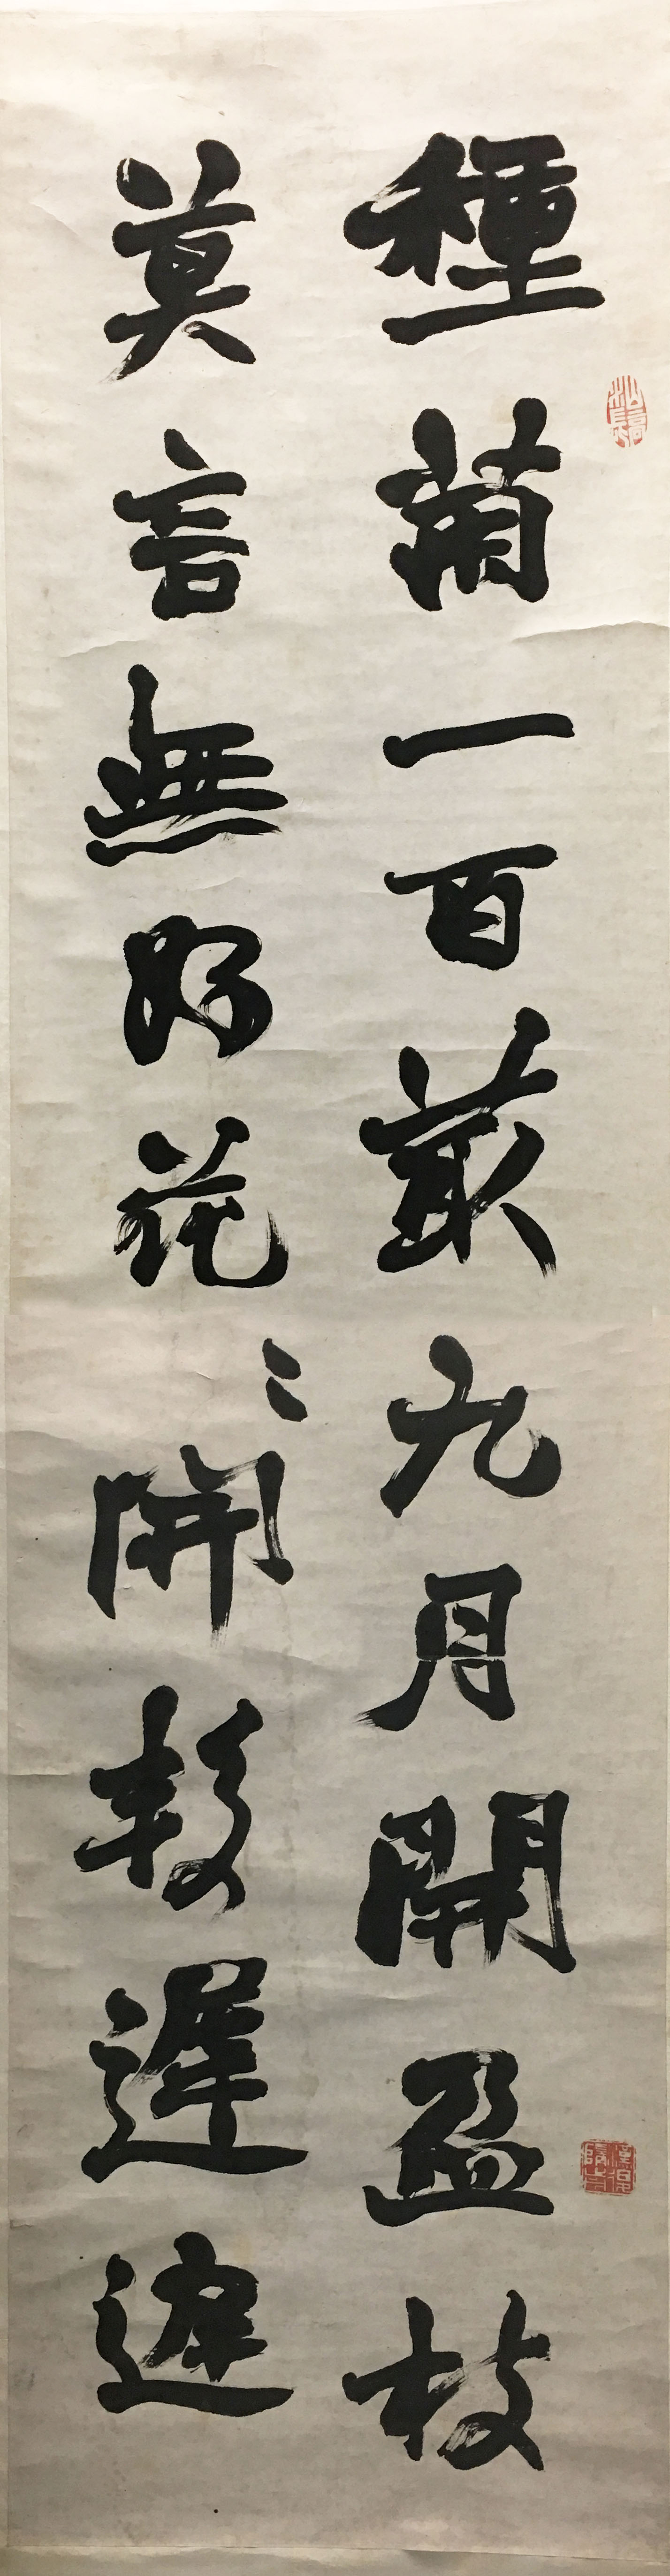 種菊一百菆九月開盈枝
莫言無好花〻開較遲遲